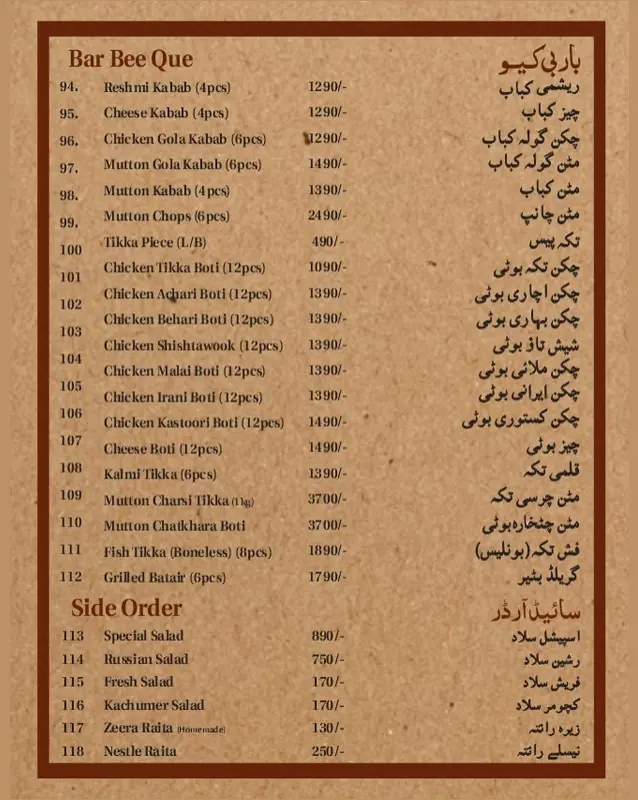 Bar Bee Que باربی کیو
94. Reshmi Kabab (4pcs) 1290/- ریشمی کباب
95. Cheese Kabab (4pcs) 1290/- چیز کباب
96. Chicken Gola Kabab (6pcs) 1290/- چکن گولہ کباب
97. Mutton Gola Kabab (6pcs) 1490/- مٹن گولہ کباب
98. Mutton Kabab (4pcs) 1390/- مٹن کباب
99. Mutton Chops (6pcs) 2490/- مٹن چانپ
100 Tikka Piece (L/B) 490/- تکہ پیس
101 Chicken Tikka Boti (12pcs) 1090/- چکن تکہ بوٹی
102 Chicken Achari Boti (12pcs) 1390/- چکن اچاری بوٹی
103 Chicken Behari Boti (12pcs) 1390/- چکن بہاری بوٹی
104 Chicken Shishtawook (12pcs) 1390/- شیش تاؤ بوٹی
105 Chicken Malai Boti (12pcs) 1390/- چکن ملائی بوٹی
Chicken Irani Boti (12pcs) 1390/- چکن ایرانی بوٹی
106 Chicken Kastoori Boti (12pcs) 1490/- چکن کستوری بوٹی
107 Cheese Boti (12pcs) 1490/- چیز بوٹی
108 Kalmi Tikka (6pcs) 1390/- قلمی تکہ
109 Mutton Charsi Tikka (1kg) 3700/- مٹن چرسی تکہ
110 Mutton Chatkhara Boti 3700/- مٹن چٹخارہ بوٹی
111 Fish Tikka (Boneless) (8pcs) 1890/- فش تکہ (بونلیس)
112 Grilled Batair (6pcs) 1790/- گریلڈ بٹیر
Side Order سائیڈ آرڈر
113 Special Salad 890/- اسپیشل سلاد
114 Russian Salad 750/- رشین سلاد
115 Fresh Salad 170/- فریش سلاد
116 Kachumer Salad 170/- کچومر سلاد
117 Zeera Raita (Homemade) 130/- زیرہ رائتہ
118 Nestle Raita 250/- نیسلے رائتہ